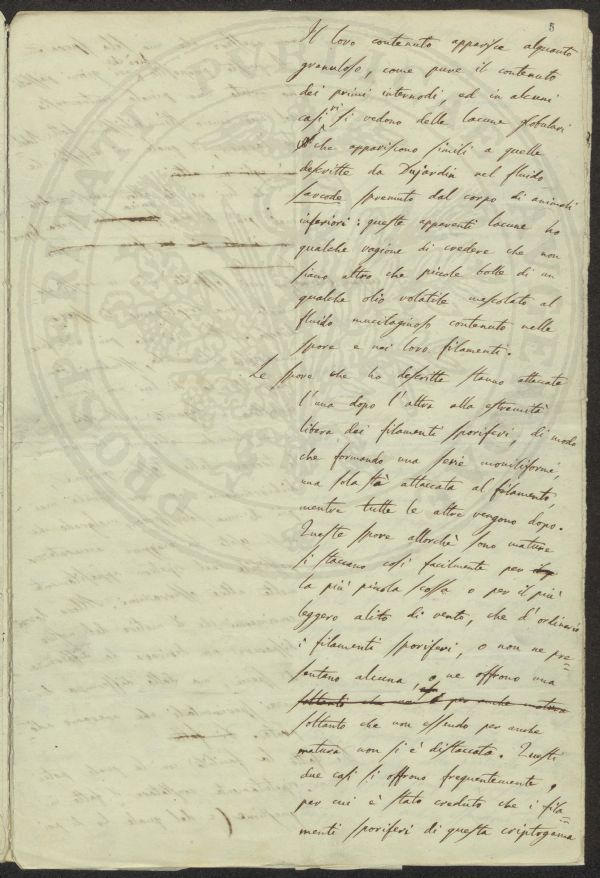 5
Il loro contenuto apparisce alquanto
granuloso, come pure il contenuto
dei primi internodi, ed in alcuni
casi vi si vedono delle lacune globulari
che appariscono simili a quelle
descritte da Dujardin nel fluido
sarcode spremuto dal corpo di animali
inferiori: queste apparenti lacune ho
qualche ragione di credere che non
siano altro che piccole bolle di un
qualche olio volatile mescolato al
fluido mucilaginoso contenuto nelle
spore e nei loro filamenti.
Le spore che ho descritte stanno attaccate
l'una dopo l'altra alla estremità
libera dei filamenti sporiferi, di modo
che formando una serie moniliforme,
una sola sta attaccata al filamento,
mentre tutte le altre vengono dopo.
Queste spore allorchè sono mature
si staccano così facilmente per
la più piccola scossa o per il più
leggero alito di vento, che d'ordinario
i filamenti sporiferi, o non ne pre=
sentano alcuna, o ne offrono una
soltanto che non è per anche matura
soltanto che non essendo per anche
matura non si è distaccata. Questi
due casi si offrono frequentemente,
per cui è stato creduto che i fila=
menti sporiferi di questa criptogama
PROSPERITATI PUBLICAE